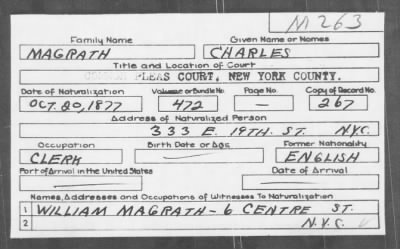 M263
Family Name Given Name or Names
MAGRATH CHARLES
Title and Location of Court
PLEAS COURT, NEW YORK COUNTY.
Date of Naturalization Volume or Bundle No Page No. Copy of Record No.
OCT. 20, 1877 472 — 267
Address of Naturalized Person
333 E. 19TH. ST. N.Y.C.
Occupation Birth Date or Age Former Nationality
CLERK ENGLISH
Port of Arrival in the United States Date of Arrival
Names, Addresses and Occupations of Witnesses To Naturalization
1 WILLIAM MAGRATH - 6 CENTRE ST.
2 N.Y.C.